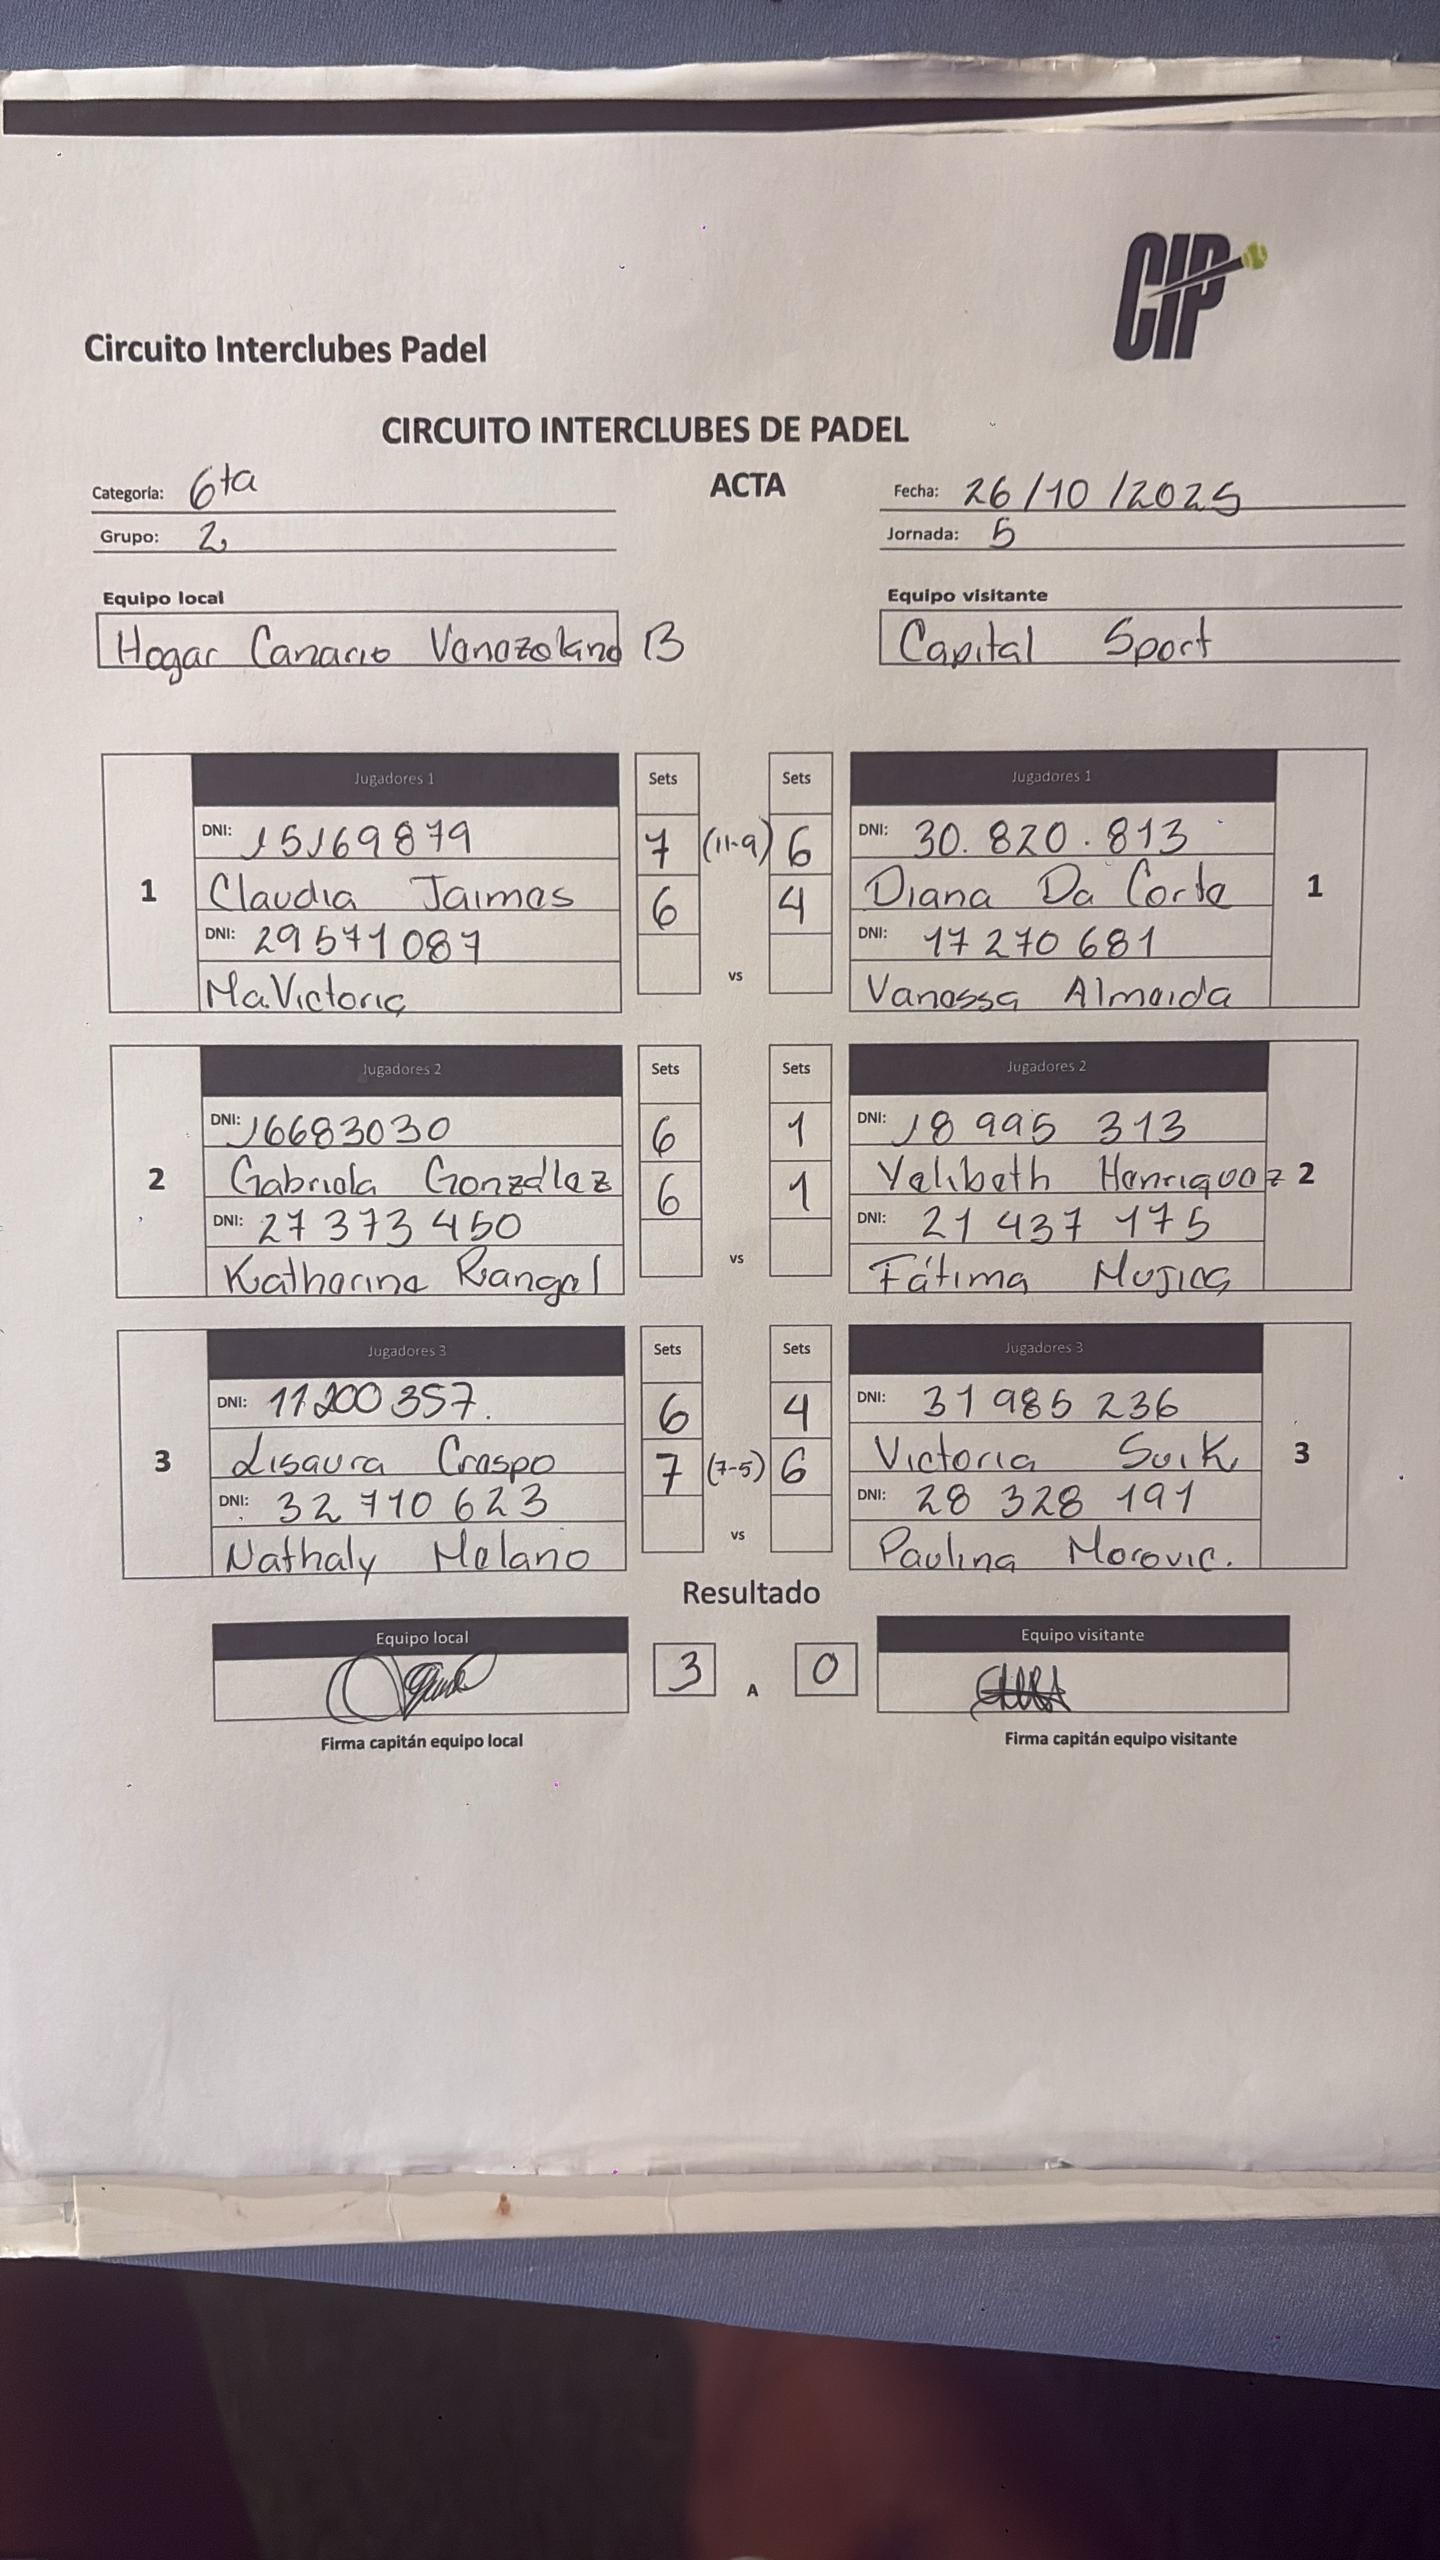 CIP
Circuito Interclubes Padel
CIRCUITO INTERCLUBES DE PADEL
Categoría: 6ta ACTA Fecha: 26/10/2025
Grupo: 2 Jornada: 5
Equipo local Equipo visitante
Hogar Canario Venezolano B Capital Sport
Jugadores 1 Sets Sets Jugadores 1
DNI: 15169879 7 (11-9) 6 DNI: 30.820.813
1 Claudia Jaimes 6 4 Diana Da Corte 1
DNI: 29571087 DNI: 17270681
Ma.Victoria vs Vanessa Almeida
Jugadores 2 Sets Sets Jugadores 2
DNI: 16683030 6 1 DNI: 18 995 313
2 Gabriela González 6 1 Yelibeth Henriquez 2
DNI: 27 373 450 DNI: 21 437 175
Katherine Rangel vs Fátima Mujica
Jugadores 3 Sets Sets Jugadores 3
DNI: 11200357. 6 4 DNI: 31 985 236
3 Lisaura Crespo 7 (7-5) 6 Victoria Suik 3
DNI: 32 710 623 DNI: 28 328 191
Nathaly Melano vs Paulina Morovic.
Resultado
Equipo local 3 A 0 Equipo visitante
Firma capitán equipo local Firma capitán equipo visitante